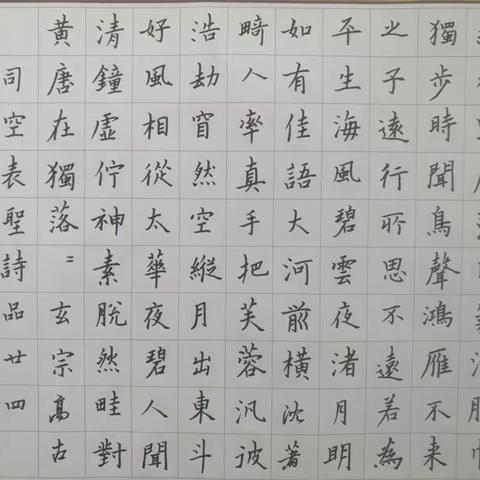 獨步時聞鳥聲鴻雁不来
之子遠行所思不遠若為
平生海風碧雲夜渚月明
如有佳語大河前橫沈著
畸人率真手把芙蓉汎彼
浩劫窅然空縱月出東斗
好風相從太華夜碧人聞
清鐘虛佇神素脫然畦對
黃唐在獨落=玄宗高古
司空表聖詩品廿四